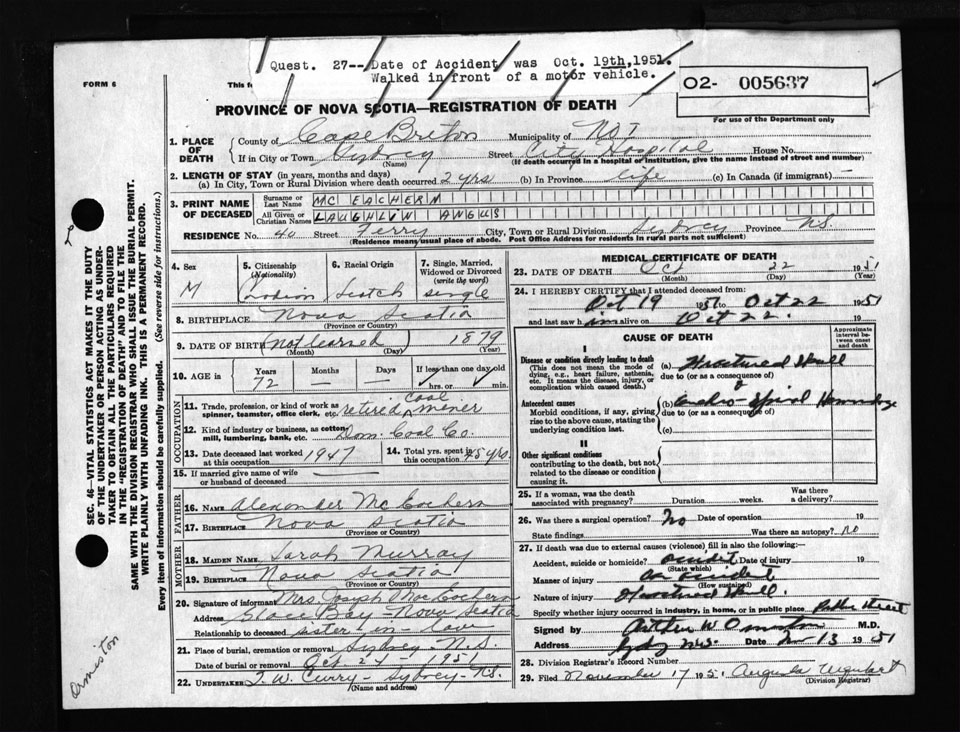 Quest. 27-- Date of Accident was Oct. 19th,1951.
Walked in front of a motor vehicle.
FORM 6
This fo
O2- 005637
For use of the Department only
PROVINCE OF NOVA SCOTIA—REGISTRATION OF DEATH
1. PLACE OF DEATH
County of Cape Breton Municipality of
If in City or Town Sydney Street City Hospital House No.
(Name) (If death occurred in a hospital or institution, give the name instead of street and number)
2. LENGTH OF STAY (in years, months and days)
(a) In City, Town or Rural Division where death occurred 2 yrs (b) In Province life (c) In Canada (if immigrant) —
3. PRINT NAME OF DECEASED
Surname or Last Name MC EACHERN
All Given or Christian Names LAUGHLIN ANGUS
RESIDENCE No. 40 Street Terry City, Town or Rural Division Sydney Province N.S.
(Residence means usual place of abode. Post Office Address for residents in rural parts not sufficient)
4. Sex M
5. Citizenship (Nationality)
6. Racial Origin Scotch
7. Single, Married, Widowed or Divorced (write the word) single
8. BIRTHPLACE Nova Scotia
(Province or Country)
9. DATE OF BIRTH (Not learned) 1879
(Month) (Day) (Year)
10. AGE in Years 72 Months — Days — If less than one day old hrs. or min.
OCCUPATION
11. Trade, profession, or kind of work as spinner, teamster, office clerk, etc. retired coal miner
12. Kind of industry or business, as cotton mill, lumbering, bank, etc. Dom. Coal Co.
13. Date deceased last worked at this occupation 1947
14. Total yrs. spent in this occupation 45 yrs.
15. If married give name of wife or husband of deceased
FATHER
16. NAME Alexander McEachern
17. BIRTHPLACE Nova Scotia
(Province or Country)
MOTHER
18. MAIDEN NAME Sarah Murray
19. BIRTHPLACE Nova Scotia
(Province or Country)
20. Signature of informant Mrs. Joseph MacEachern
Address Glace Bay Nova Scotia
Relationship to deceased sister in law
21. Place of burial, cremation or removal Sydney - N.S.
Date of burial or removal Oct 24 1951
22. UNDERTAKER T. W. Curry - Sydney - N.S.
(Name and address)
MEDICAL CERTIFICATE OF DEATH
23. DATE OF DEATH Oct 22 1951
(Month) (Day) (Year)
24. I HEREBY CERTIFY that I attended deceased from:
Oct 19 1951 to Oct 22 1951
and last saw him alive on Oct 22. 19
CAUSE OF DEATH
Approximate interval between onset and death
I
Disease or condition directly leading to death
(This does not mean the mode of dying, e.g., heart failure, asthenia, etc. It means the disease, injury, or complication which caused death.)
(a) Fractured Skull
due to (or as a consequence of)
Antecedent causes
Morbid conditions, if any, giving rise to the above cause, stating the underlying condition last.
(b) Cerebro-Spinal Hemorrhage
due to (or as a consequence of)
(c)
II
Other significant conditions
contributing to the death, but not related to the disease or condition causing it.
25. If a woman, was the death associated with pregnancy? Duration weeks. Was there a delivery?
26. Was there a surgical operation? No Date of operation 19
State findings Was there an autopsy? No
27. If death was due to external causes (violence) fill in also the following:—
Accident, suicide or homicide? accident Date of injury 19
(State which)
Manner of injury Car accident
(How sustained)
Nature of injury Fractured Skull.
Specify whether injury occurred in industry, in home, or in public place Public Street
Signed by Arthur W Ormiston M.D.
Address Sydney N.S. Date Nov 13 1951
28. Division Registrar's Record Number
29. Filed November 17 1951 Urquhart
(Division Registrar)
SEC. 46—VITAL STATISTICS ACT MAKES IT THE DUTY
OF THE UNDERTAKER OR PERSON ACTING AS UNDER-
TAKER TO OBTAIN ALL THE PARTICULARS REQUIRED
IN THE "REGISTRATION OF DEATH" AND TO FILE THE
SAME WITH THE DIVISION REGISTRAR WHO SHALL ISSUE THE BURIAL PERMIT.
WRITE PLAINLY WITH UNFADING INK. THIS IS A PERMANENT RECORD.
Every item of information should be carefully supplied. (See reverse side for instructions.)
Ormiston